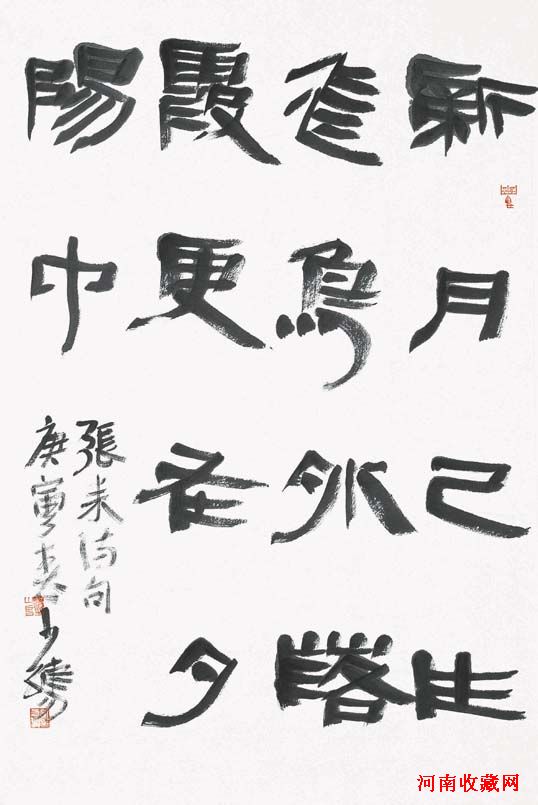 新月已生
飛鳥外落
霞更在夕
陽中
張耒詩句
庚寅
河南收藏网